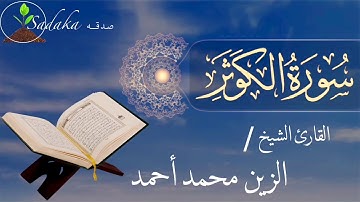 Sadaka صدقه
سُورَةُ الكَوثَرِ
القارئ الشيخ /
الزين محمد أحمد